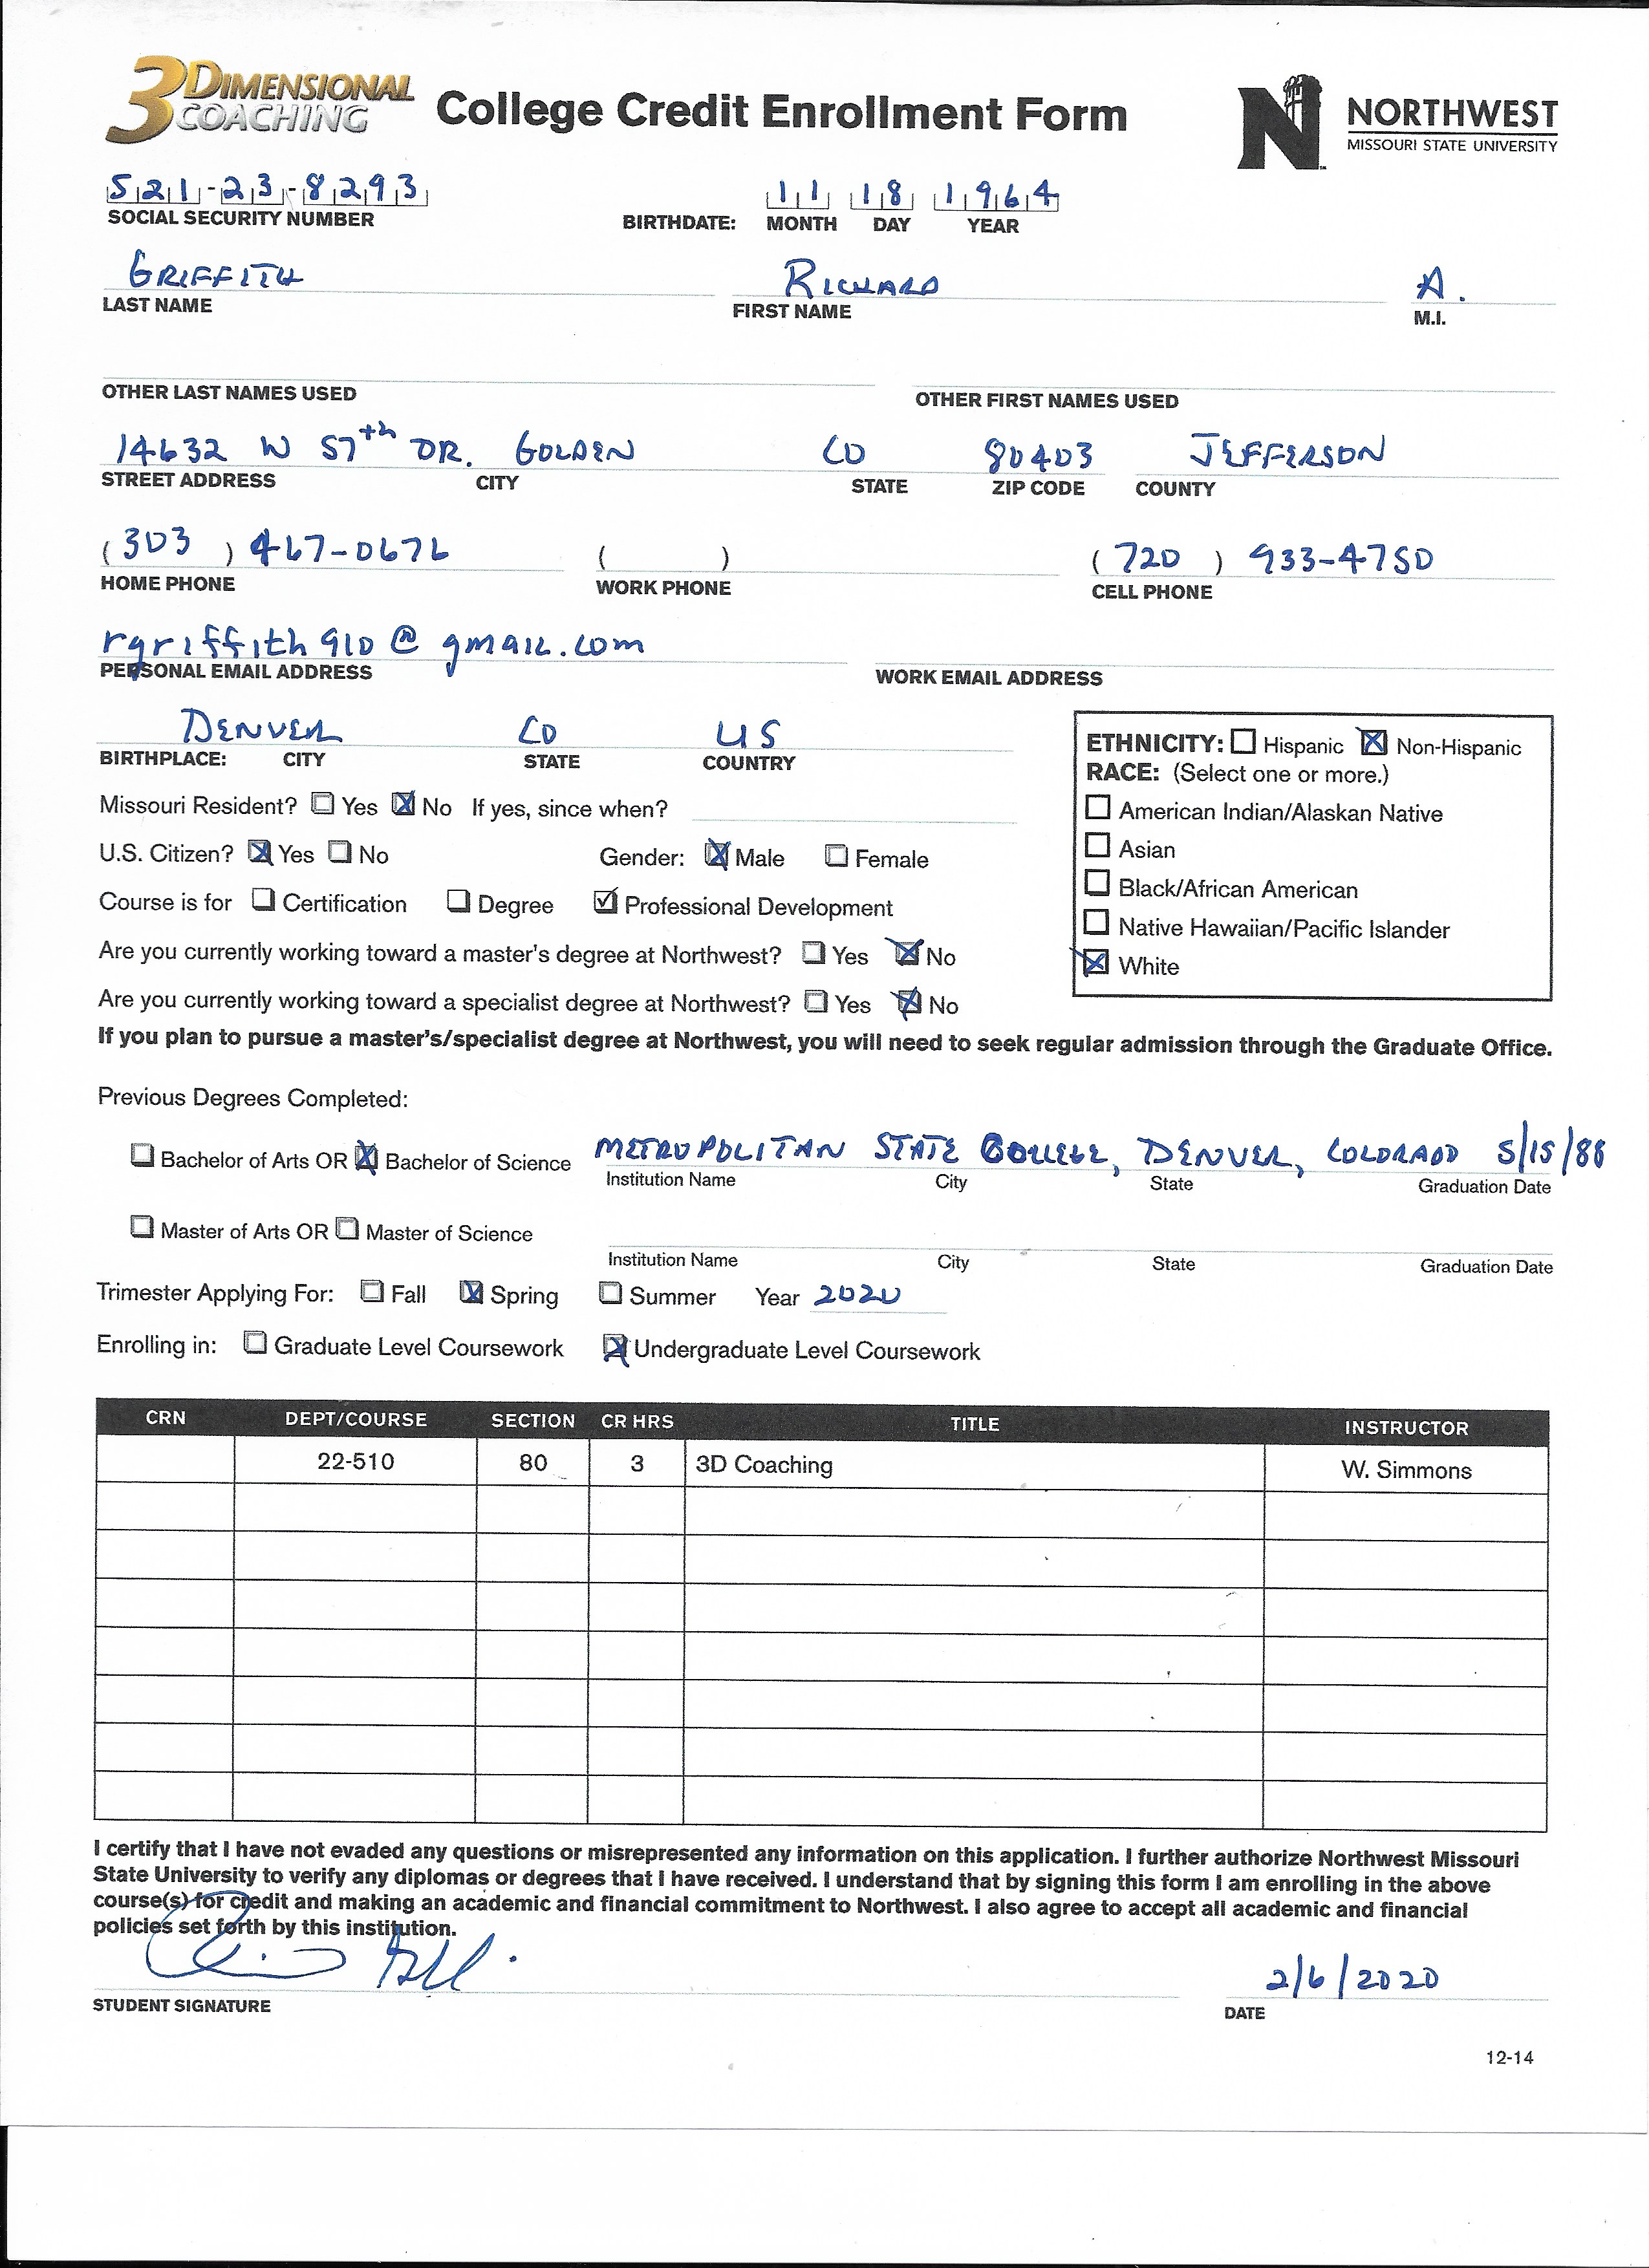 3 DIMENSIONAL COACHING
College Credit Enrollment Form
NORTHWEST
MISSOURI STATE UNIVERSITY
521-23-8293 11 18 1964
SOCIAL SECURITY NUMBER BIRTHDATE: MONTH DAY YEAR
GRIFFITH RICHARD A.
LAST NAME FIRST NAME M.I.
OTHER LAST NAMES USED OTHER FIRST NAMES USED
14632 W 57th DR. GOLDEN CO 80403 JEFFERSON
STREET ADDRESS CITY STATE ZIP CODE COUNTY
(303) 467-0676 ( ) (720) 933-4750
HOME PHONE WORK PHONE CELL PHONE
rgriffith910@gmail.com
PERSONAL EMAIL ADDRESS WORK EMAIL ADDRESS
DENVER CO US
BIRTHPLACE: CITY STATE COUNTRY
ETHNICITY: Hispanic Non-Hispanic
RACE: (Select one or more.)
American Indian/Alaskan Native
Asian
Black/African American
Native Hawaiian/Pacific Islander
White
Missouri Resident? Yes No If yes, since when?
U.S. Citizen? Yes No Gender: Male Female
Course is for Certification Degree Professional Development
Are you currently working toward a master's degree at Northwest? Yes No
Are you currently working toward a specialist degree at Northwest? Yes No
If you plan to pursue a master's/specialist degree at Northwest, you will need to seek regular admission through the Graduate Office.
Previous Degrees Completed:
Bachelor of Arts OR Bachelor of Science METROPOLITAN STATE COLLEGE, DENVER, COLORADO 5/15/88
Institution Name City State Graduation Date
Master of Arts OR Master of Science
Institution Name City State Graduation Date
Trimester Applying For: Fall Spring Summer Year 2020
Enrolling in: Graduate Level Coursework Undergraduate Level Coursework
CRN DEPT/COURSE SECTION CR HRS TITLE INSTRUCTOR
22-510 80 3 3D Coaching W. Simmons
I certify that I have not evaded any questions or misrepresented any information on this application. I further authorize Northwest Missouri
State University to verify any diplomas or degrees that I have received. I understand that by signing this form I am enrolling in the above
course(s) for credit and making an academic and financial commitment to Northwest. I also agree to accept all academic and financial
policies set forth by this institution.
2/6/2020
STUDENT SIGNATURE DATE
12-14